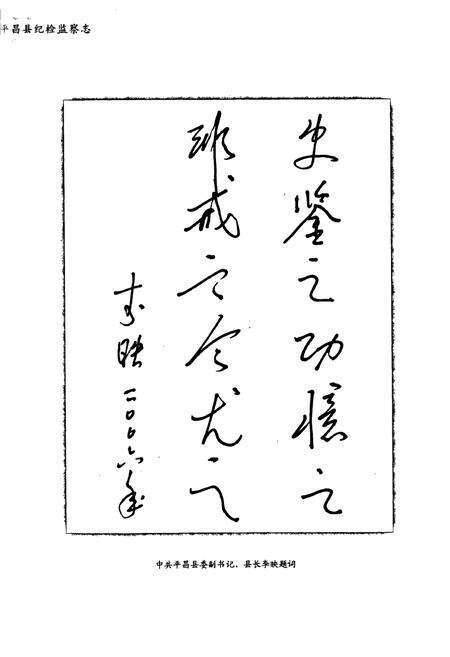 平昌县纪检监察志
史鉴之功憶之
戒之尤之
李映二〇〇六年
中共平昌县委副书记、县长李映题词